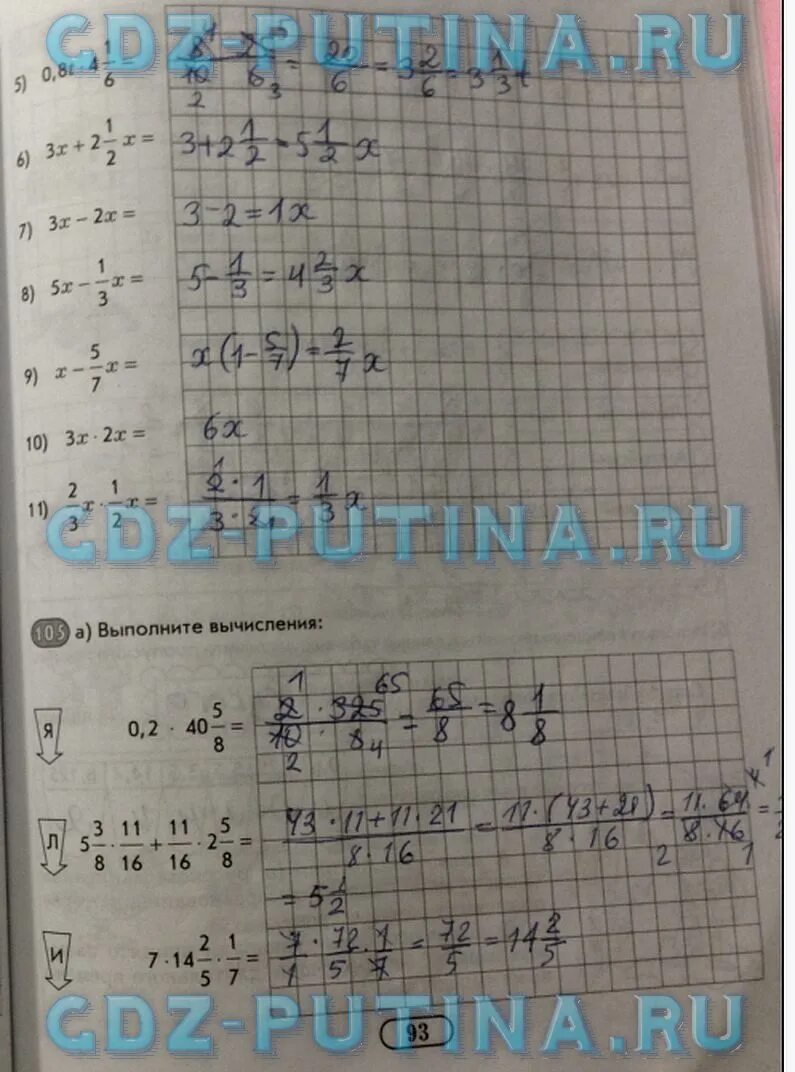 GDZ-PUTINA.RU
5) 0,8t · 4 1/6 = 8/10 · 25/6 = 20/6 = 3 2/6 = 3 1/3 t
6) 3x + 2 1/2 x = 3 + 2 1/2 = 5 1/2 x
7) 3x − 2x = 3 − 2 = 1x
8) 5x − 1/3 x = 5 − 1/3 = 4 2/3 x
GDZ-PUTINA.RU
9) x − 5/7 x = x(1 − 5/7) = 2/7 x
10) 3x · 2x = 6x
11) 2/3 x · 1/2 x = 2 · 1 / 3 · 2 = 1/3 x
GDZ-PUTINA.RU
105 а) Выполните вычисления:
Я 0,2 · 40 5/8 = 2 · 325 / 10 · 8 = 65/8 = 8 1/8
GDZ-PUTINA.RU
Л 5 3/8 · 11/16 + 11/16 · 2 5/8 = 43 · 11 + 11 · 21 / 8 · 16 = 11 · (43 + 21) / 8 · 16 = 11 · 64 / 8 · 16 =
= 5 1/2
И 7 · 14 2/5 · 1/7 = 7/1 · 72/5 · 1/7 = 72/5 = 14 2/5
GDZ-PUTINA.RU
93